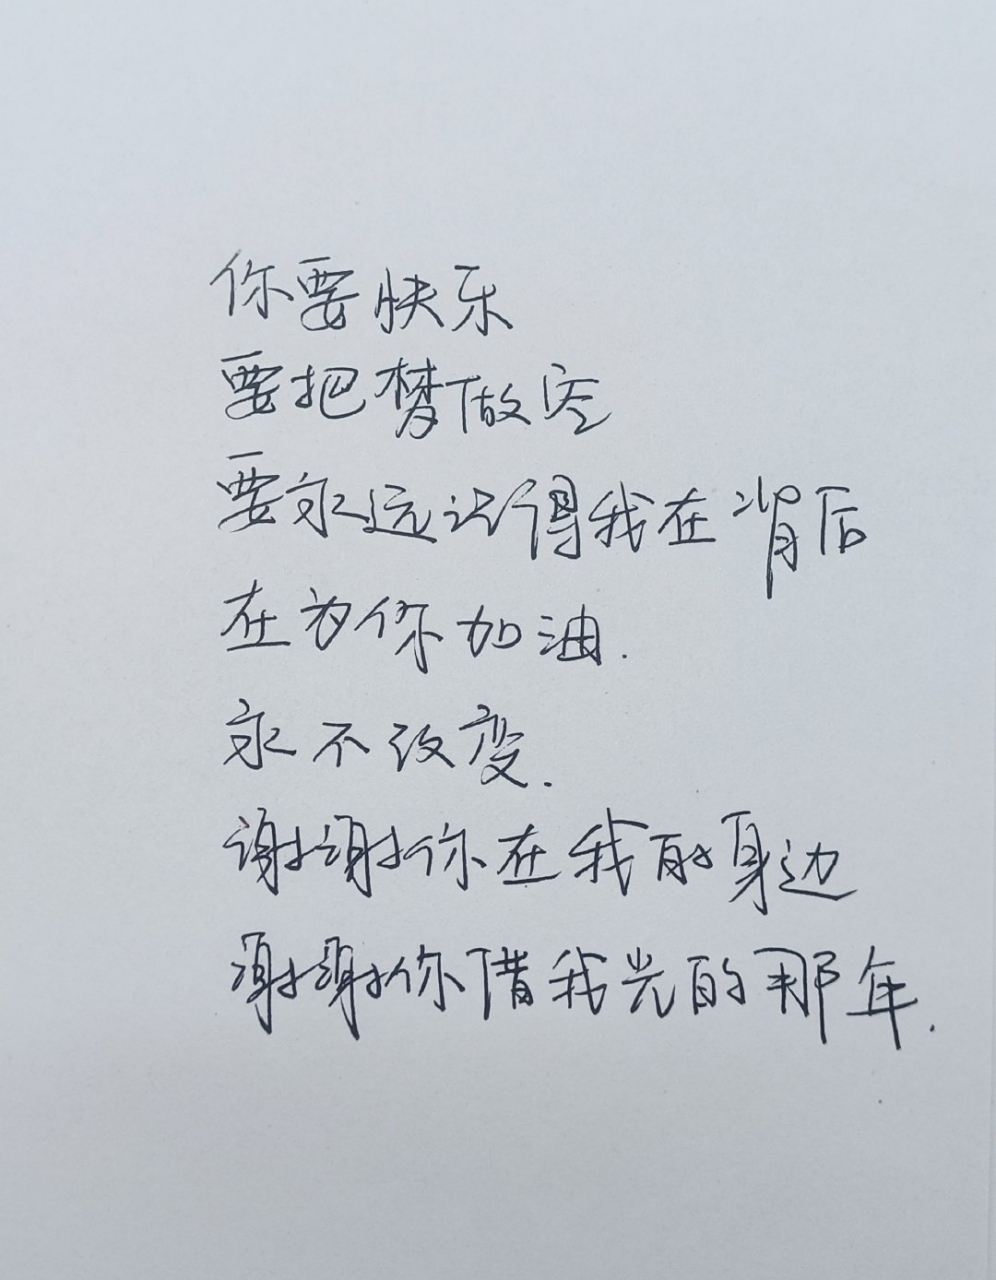 你要快乐
要把梦做完
要永远记得我在背后
在为你加油.
永不改变.
谢谢你在我的身边
谢谢你借我光的那年.